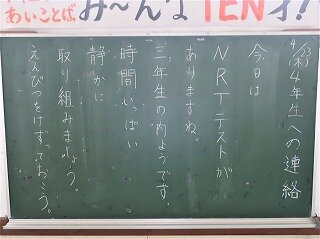 あいことば
み〜んな TEN才!
4/23(木) 4年生への連絡
今日は
NRTテストが
ありますね。
三年生の内ようです。
時間いっぱい
静かに
取り組みましょう。
えんぴつをけずっておこう。